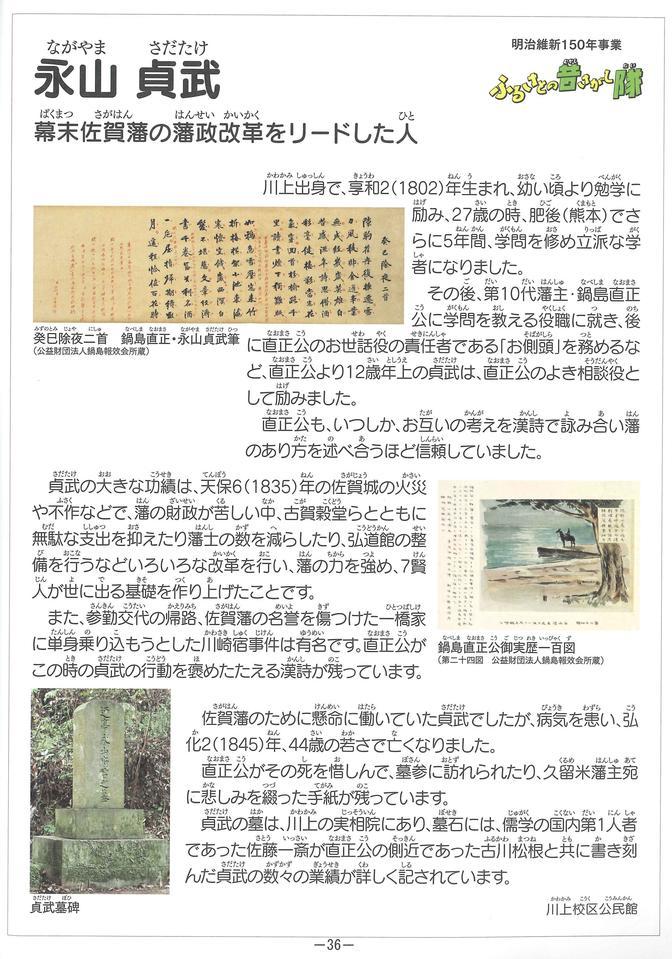 明治維新150年事業
ふるさとの昔さがし隊
永山 貞武
幕末佐賀藩の藩政改革をリードした人
川上出身で、享和2(1802)年生まれ、幼い頃より勉学に
励み、27歳の時、肥後(熊本)でさ
らに5年間、学問を修め立派な学
者になりました。
その後、第10代藩主・鍋島直正
公に学問を教える役職に就き、後
に直正公のお世話役の責任者である「お側頭」を務めるな
ど、直正公より12歳年上の貞武は、直正公のよき相談役と
して励みました。
直正公も、いつしか、お互いの考えを漢詩で詠み合い藩
のあり方を述べ合うほど信頼していました。
癸巳除夜二首 鍋島直正・永山貞武筆
(公益財団法人鍋島報效会所蔵)
貞武の大きな功績は、天保6(1835)年の佐賀城の火災
や不作などで、藩の財政が苦しい中、古賀穀堂らとともに
無駄な支出を抑えたり藩士の数を減らしたり、弘道館の整
備を行うなどいろいろな改革を行い、藩の力を強め、7賢
人が世に出る基礎を作り上げたことです。
また、参勤交代の帰路、佐賀藩の名誉を傷つけた一橋家
に単身乗り込もうとした川崎宿事件は有名です。直正公が
この時の貞武の行動を褒めたたえる漢詩が残っています。
鍋島直正公御実歴一百図
(第二十四図 公益財団法人鍋島報效会所蔵)
佐賀藩のために懸命に働いていた貞武でしたが、病気を患い、弘
化2(1845)年、44歳の若さで亡くなりました。
直正公がその死を惜しんで、墓参に訪れられたり、久留米藩主宛
に悲しみを綴った手紙が残っています。
貞武の墓は、川上の実相院にあり、墓石には、儒学の国内第1人者
であった佐藤一斎が直正公の側近であった古川松根と共に書き刻
んだ貞武の数々の業績が詳しく記されています。
貞武墓碑
川上校区公民館
―36―